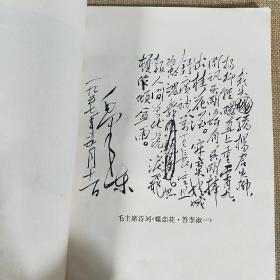 我失骄杨君失柳
杨柳轻飏直上重霄九
问讯吴刚何所有吴刚捧
出桂花酒 寂寞嫦娥
舒广袖万里长空且为
忠魂舞 忽
报人间曾伏虎泪飞
顿作倾盆雨
毛泽东
一九五七年五月十一日
毛主席诗词《蝶恋花·答李淑一》